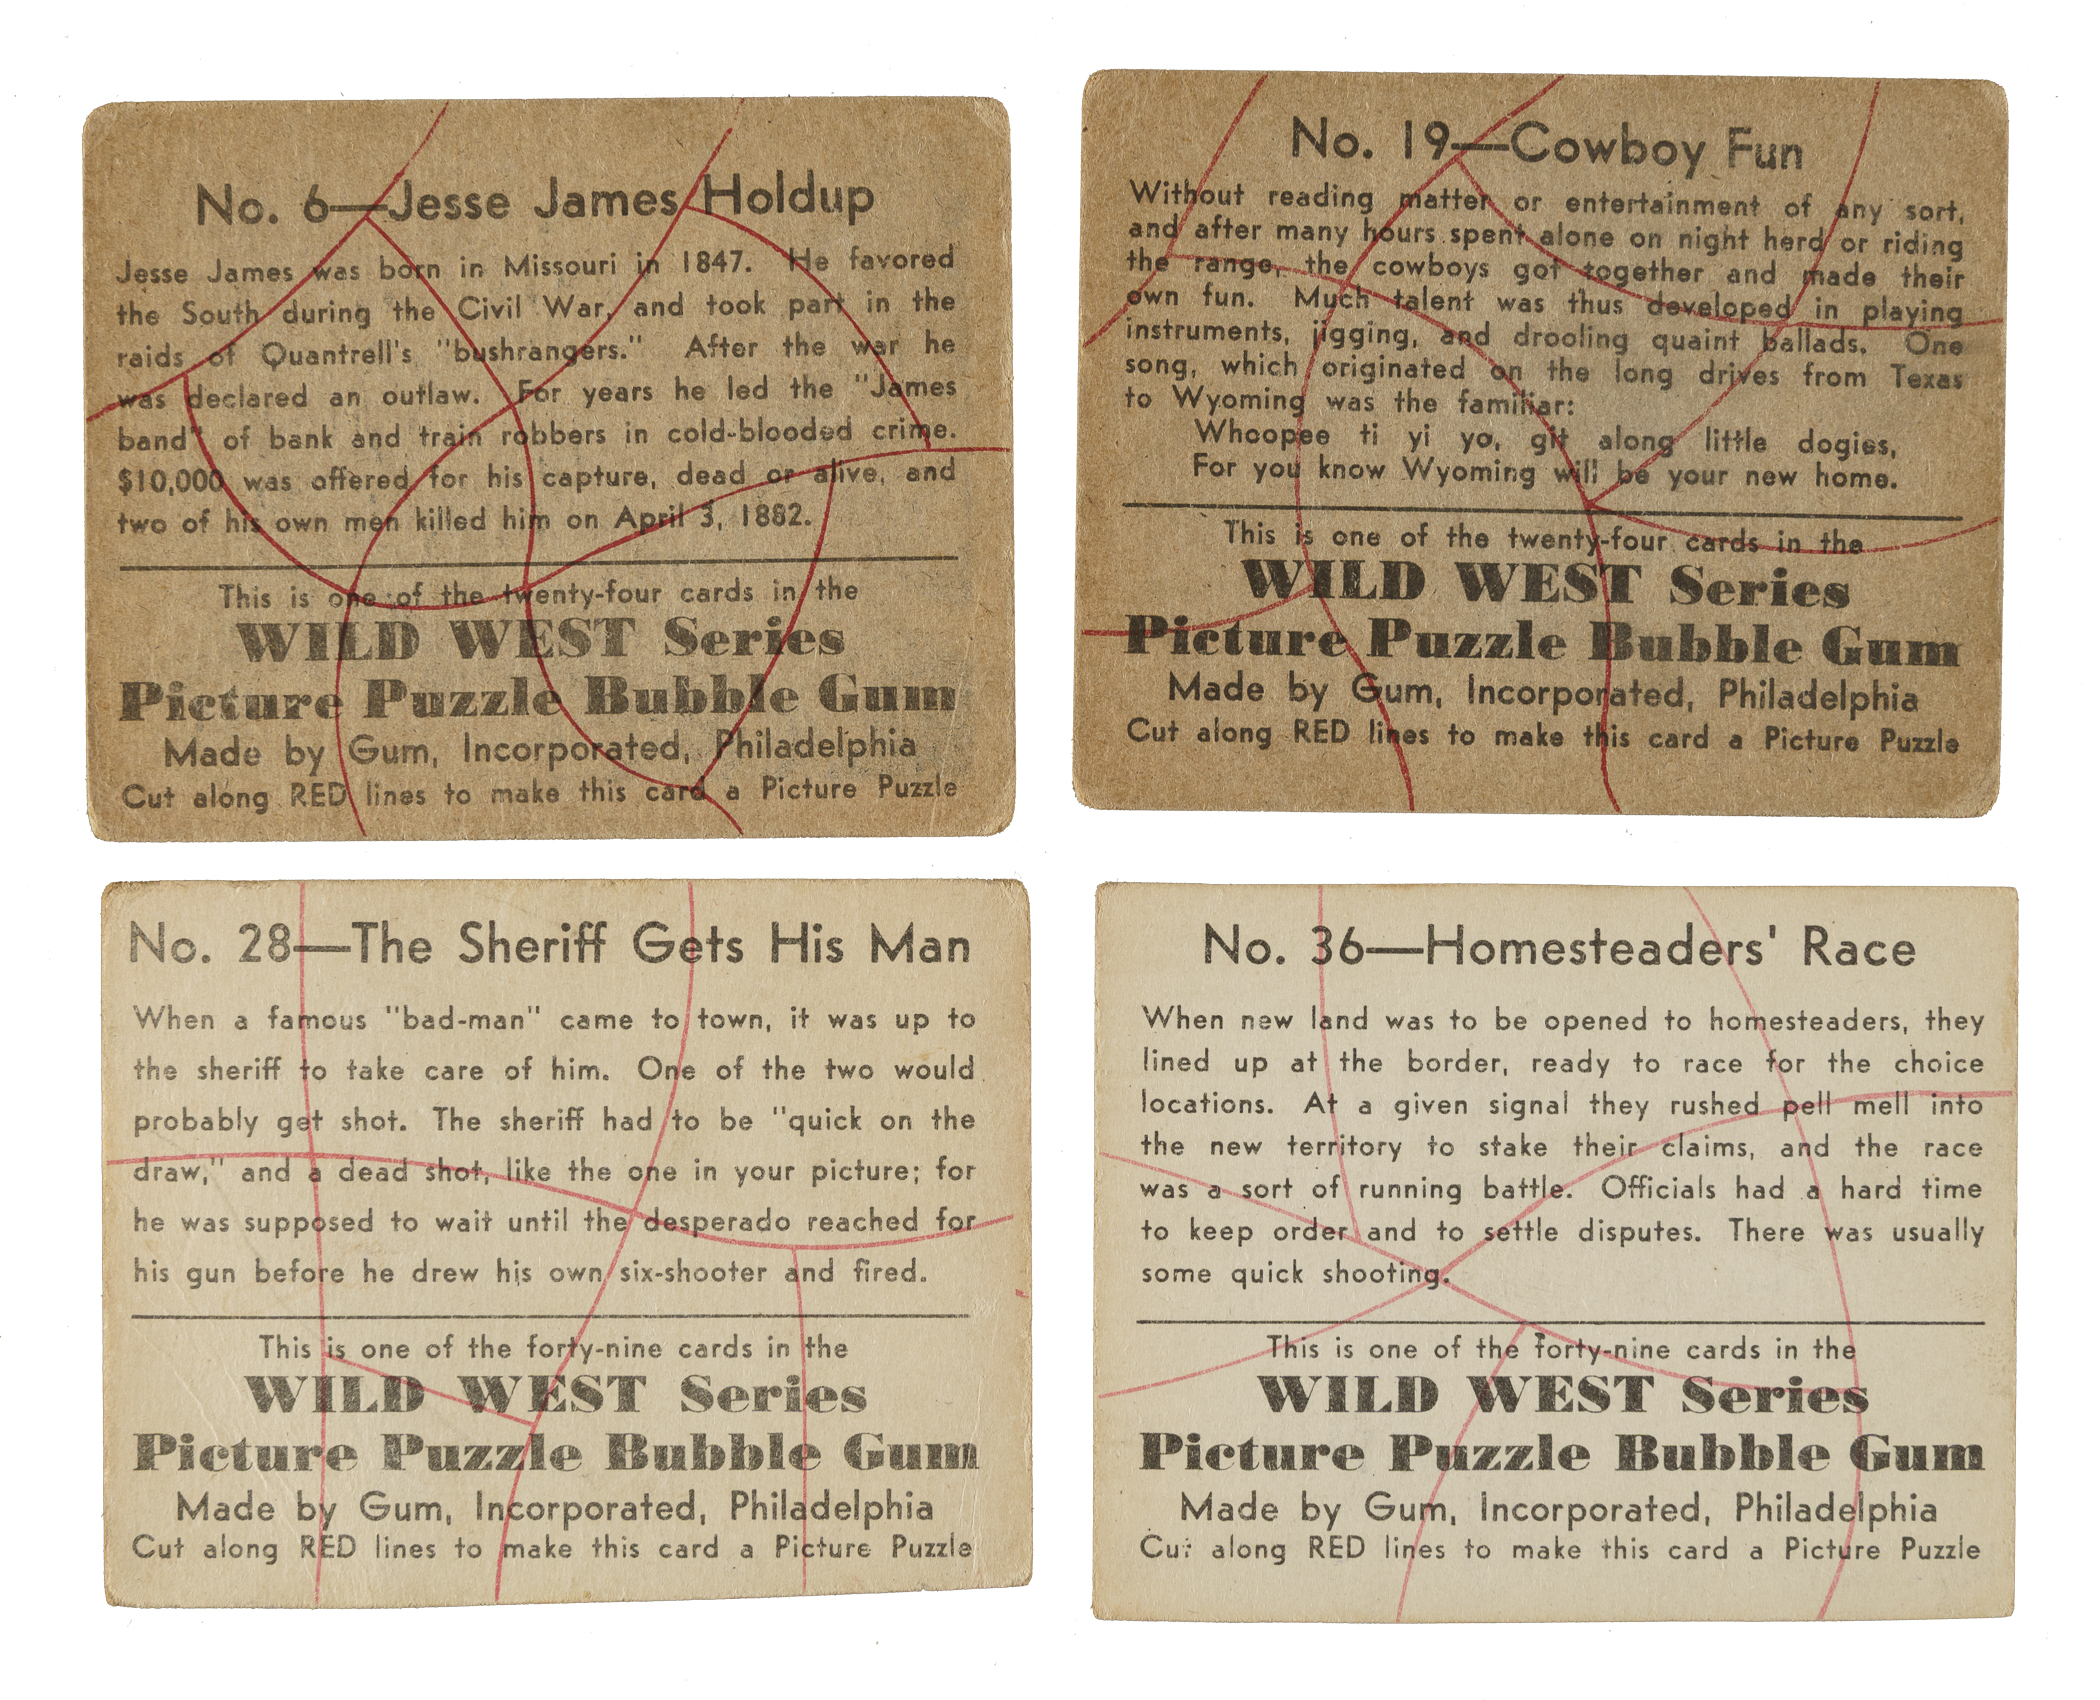 No. 6—Jesse James Holdup
Jesse James was born in Missouri in 1847. He favored
the South during the Civil War, and took part in the
raids of Quantrell's "bushrangers." After the war he
was declared an outlaw. For years he led the "James
band" of bank and train robbers in cold-blooded crime.
$10,000 was offered for his capture, dead or alive, and
two of his own men killed him on April 3, 1882.
This is one of the twenty-four cards in the
WILD WEST Series
Picture Puzzle Bubble Gum
Made by Gum, Incorporated, Philadelphia
Cut along RED lines to make this card a Picture Puzzle
No. 19—Cowboy Fun
Without reading matter or entertainment of any sort,
and after many hours spent alone on night herd or riding
the range, the cowboys got together and made their
own fun. Much talent was thus developed in playing
instruments, jigging, and drooling quaint ballads. One
song, which originated on the long drives from Texas
to Wyoming was the familiar:
Whoopee ti yi yo, git along little dogies,
For you know Wyoming will be your new home.
This is one of the twenty-four cards in the
WILD WEST Series
Picture Puzzle Bubble Gum
Made by Gum, Incorporated, Philadelphia
Cut along RED lines to make this card a Picture Puzzle
No. 28—The Sheriff Gets His Man
When a famous "bad-man" came to town, it was up to
the sheriff to take care of him. One of the two would
probably get shot. The sheriff had to be "quick on the
draw," and a dead shot, like the one in your picture; for
he was supposed to wait until the desperado reached for
his gun before he drew his own six-shooter and fired.
This is one of the forty-nine cards in the
WILD WEST Series
Picture Puzzle Bubble Gum
Made by Gum, Incorporated, Philadelphia
Cut along RED lines to make this card a Picture Puzzle
No. 36—Homesteaders' Race
When new land was to be opened to homesteaders, they
lined up at the border, ready to race for the choice
locations. At a given signal they rushed pell mell into
the new territory to stake their claims, and the race
was a sort of running battle. Officials had a hard time
to keep order and to settle disputes. There was usually
some quick shooting.
This is one of the forty-nine cards in the
WILD WEST Series
Picture Puzzle Bubble Gum
Made by Gum, Incorporated, Philadelphia
Cut along RED lines to make this card a Picture Puzzle